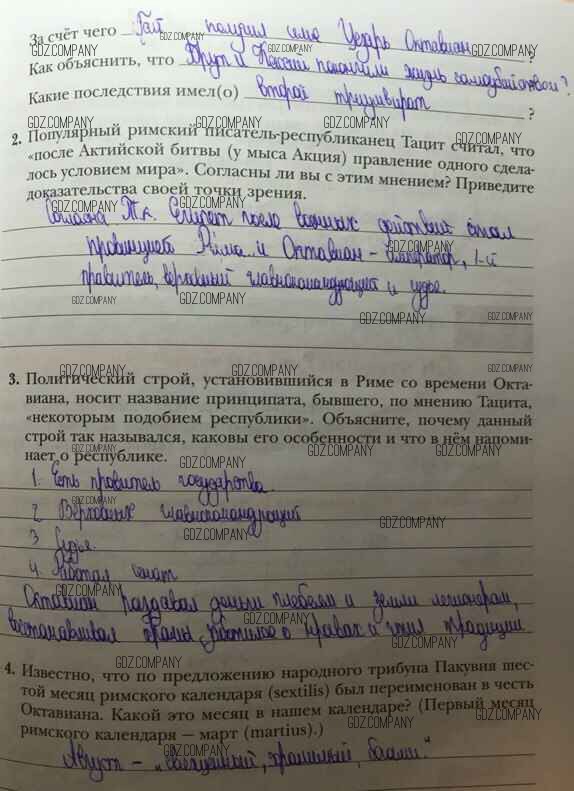 За счёт чего Гай получил имя Цезарь Октавиан ?
Как объяснить, что Брут и Кассий покончили жизнь самоубийством?
Какие последствия имел(о) второй триумвират ?
2. Популярный римский писатель-республиканец Тацит считал, что
«после Актийской битвы (у мыса Акция) правление одного сдела-
лось условием мира». Согласны ли вы с этим мнением? Приведите
доказательства своей точки зрения.
Согласна т.к. Египет после военных действий стал
провинцией Рима и Октавиан - император, 1-й
правитель, верховный главнокомандующий и судья.
3. Политический строй, установившийся в Риме со времени Окта-
виана, носит название принципата, бывшего, по мнению Тацита,
«некоторым подобием республики». Объясните, почему данный
строй так назывался, каковы его особенности и что в нём напоми-
нает о республике.
1. Есть правитель государства.
2 Верховных главнокомандующий
3 Судья.
4. Работал сенат
Октавиан раздавал деньги плебеям и земли легионерам,
восстанавливал храмы, заботился о нравах и чтил традиции
4. Известно, что по предложению народного трибуна Пакувия шес-
той месяц римского календаря (sextilis) был переименован в честь
Октавиана. Какой это месяц в нашем календаре? (Первый месяц
римского календаря — март (martius).)
Август - „священный, хранимый, богами."
GDZ.COMPANY